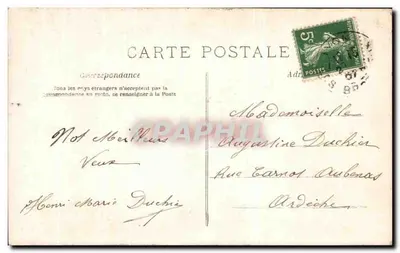 CARTE POSTALE
Correspondance
Tous les pays étrangers n'acceptent pas la
correspondance au recto, se renseigner à la Poste
Nos Meilleurs
Vœux
Henri Marie Duchier
5c
Mademoiselle
Augustine Duchier
Rue Carnot Aubenas
Ardèche